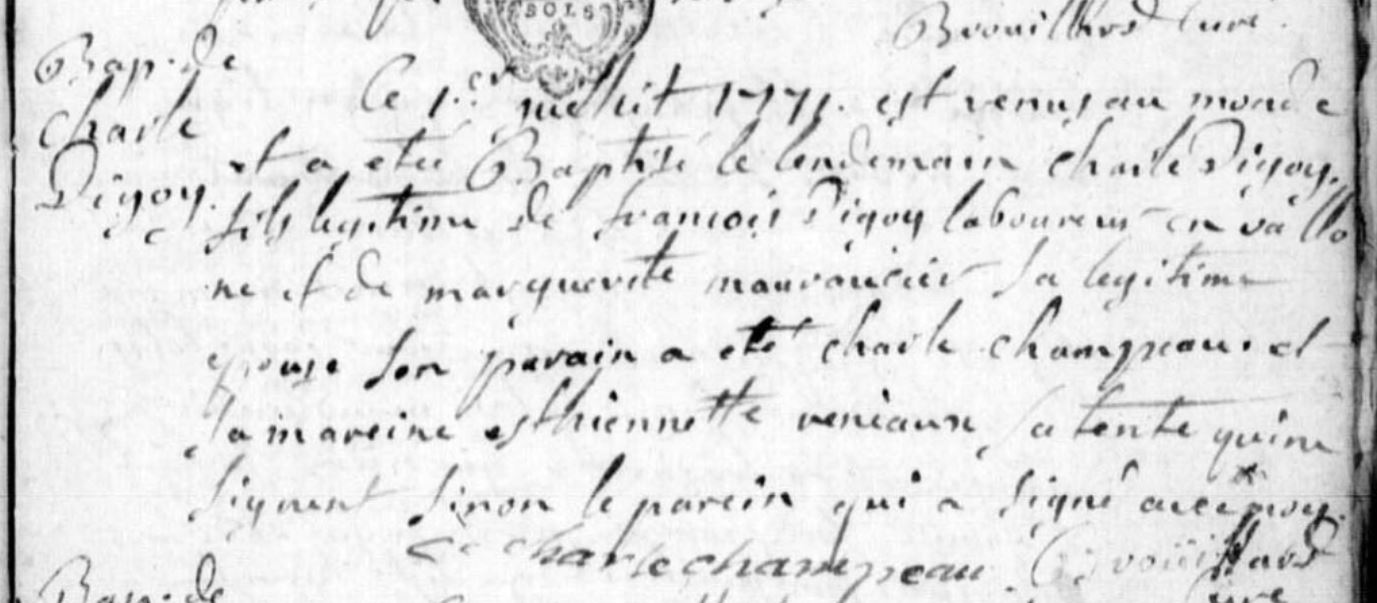 SOLS
Brouillard Curé.
Bap. de
charle
Digoy.
Ce 1.er juillit 1771. est venus au monde
et a etéé Baptisé le lendemain charle Digoy.
fils legitime de francois Digoy laboureur en vallo
ne et de marguerite sa legitime
epouse son parain a eté charle champeau. et
sa mareine esthiennette veniaux sa tente qui ne
signent sinon le parein qui a signé avec moy.
charle champeau Brouillard
Curé
Bap. de